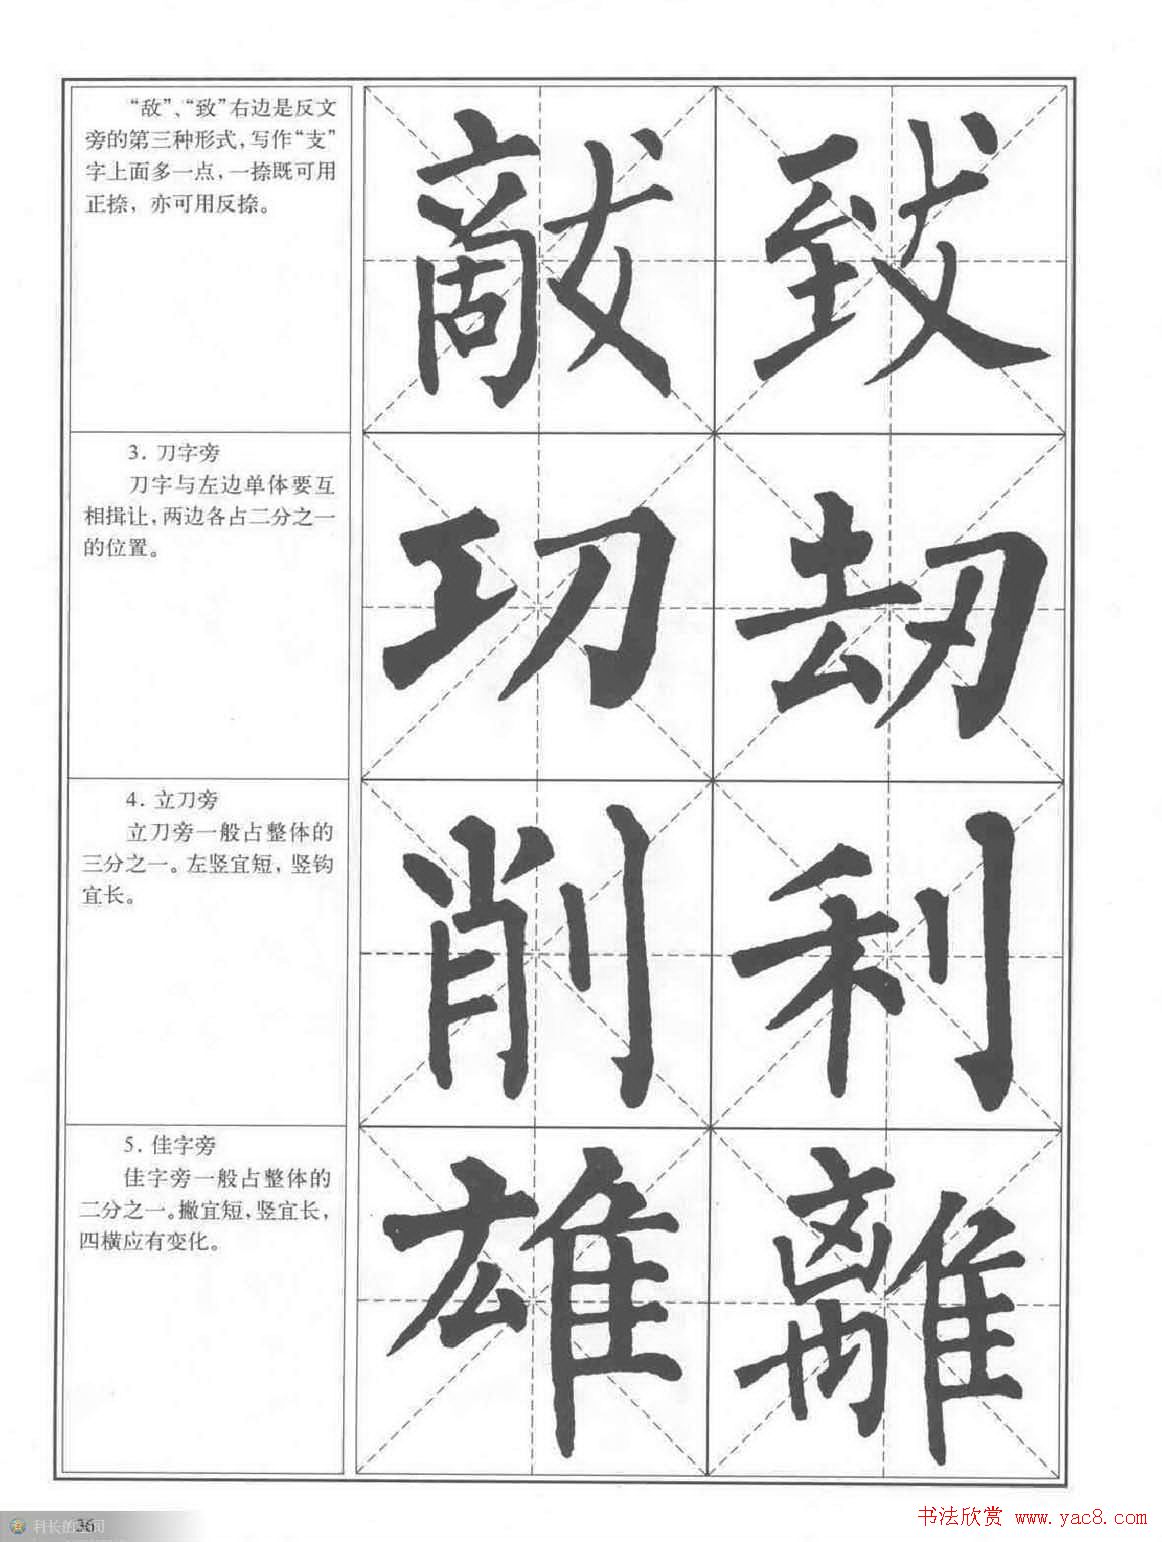 “敌”、“致”右边是反文
旁的第三种形式，写作“支”
字上面多一点，一捺既可用
正捺，亦可用反捺。
敵 致
3. 刀字旁
刀字与左边单体要互
相揖让，两边各占二分之一
的位置。
功 劫
4. 立刀旁
立刀旁一般占整体的
三分之一。左竖宜短，竖钩
宜长。
削 利
5. 佳字旁
佳字旁一般占整体的
二分之一。撇宜短，竖宜长，
四横应有变化。
雄 離
利长的空间
36
书法欣赏 www.yac8.com